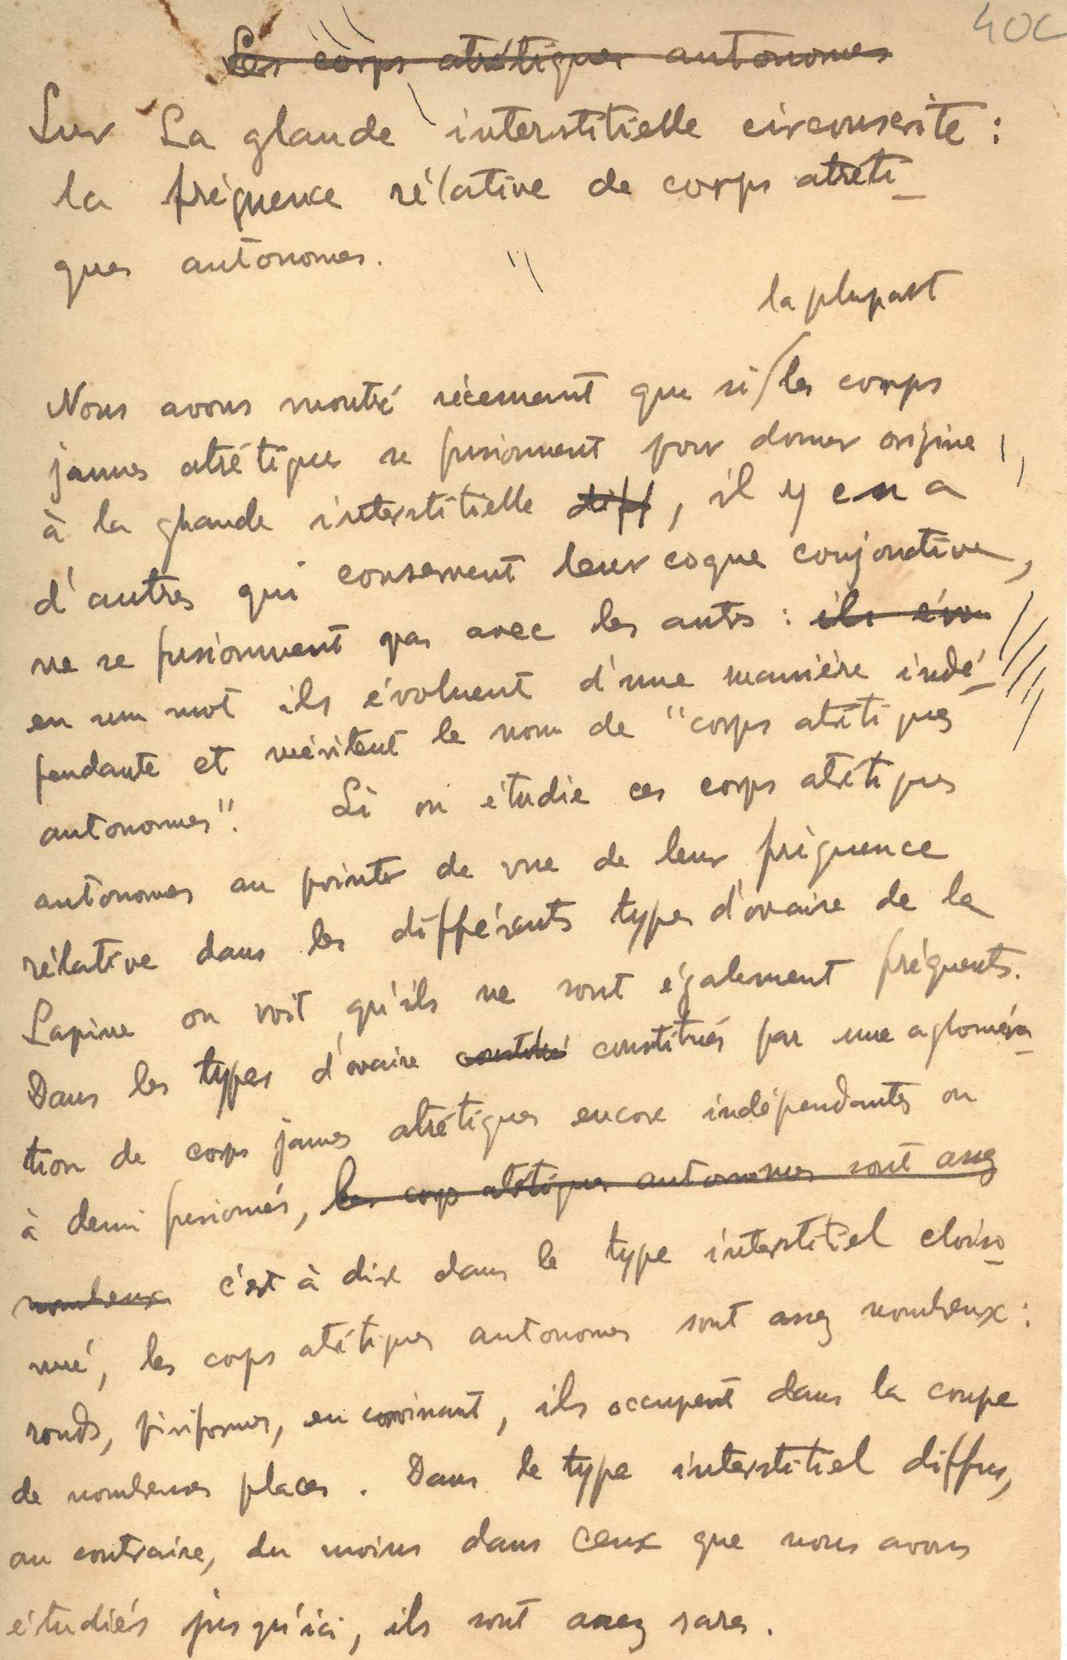 40C
Les corps atrétiques autonomes
Sur La glande interstitielle circonscrite :
la fréquence rélative de corps atréti-
ques autonomes.
la plupart
Nous avons montré récemment que si les corps
jaunes atrétiques se fusionnent pour donner origine
à la glande interstitielle diff, il y en a
d'autres qui conservent leur coque conjonctive,
ne se fusionnent pas avec les autrs : ils évo
en un mot ils évoluent d'une manière indé-
pendante et méritent le nom de "corps atrétiques
autonomes". Si on étudie ces corps atrétiques
autonomes au pointr de vue de leur fréquence
rélative dans les différents types d'ovaire de la
Lapine on voit qu'ils ne sont également fréquents.
Dans les types d'ovaire constitués par une agloméra-
tion de corps jaunes atrétiques encore indépendants ou
à demi fusionnés, les corps atrétiques autonomes sont assez
nombreux c'est à dire dans le type interstitiel cloiso-
nné, les corps atrétiques autonomes sont assez nombreux :
ronds, piriformes, en croissant, ils occupent dans la coupe
de nombreuses places. Dans le type interstitiel diffus,
au contraire, du moins dans ceux que nous avons
étudiés jusqu'ici, ils sont assez rares.